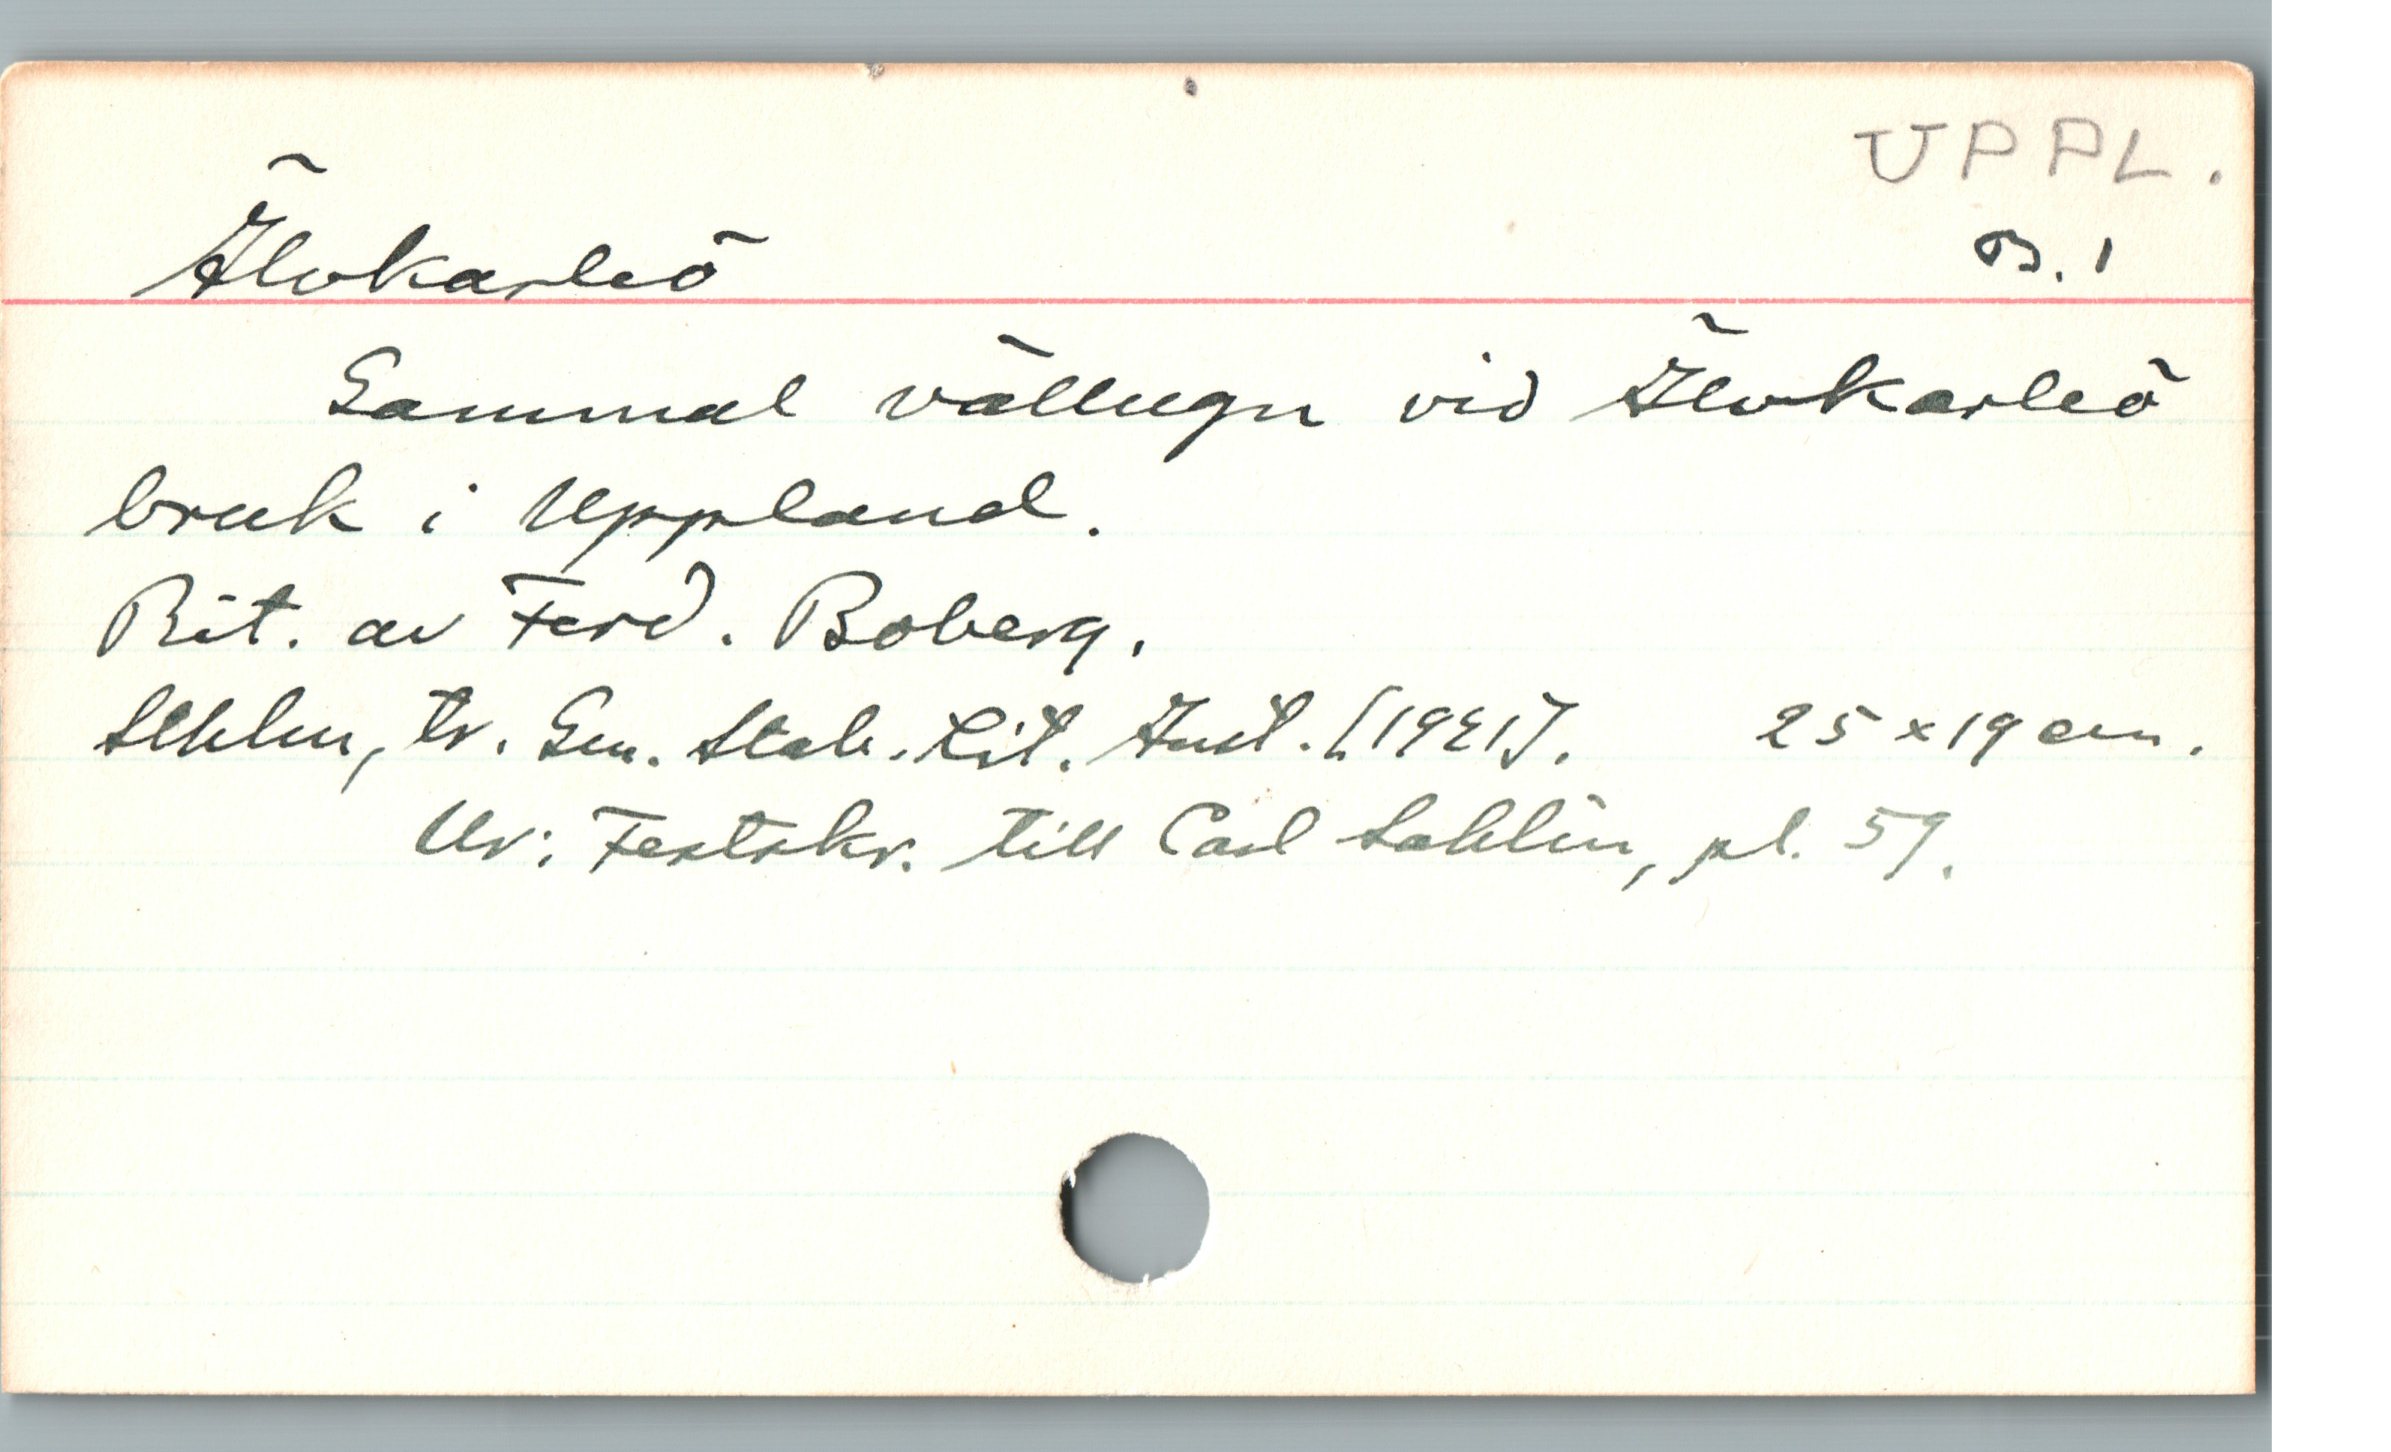 UPPL.
Älvkarleö B. 1
Gammal vällugn vid Älvkarleö
bruk i Uppland.
Rit. av Ferd. Boberg.
Sthlm, tr. Gen. Stab. Lit. Anst. [1921]. 25 x 19 cm.
Ur: Festskr. till Carl Sahlin, pl. 59.